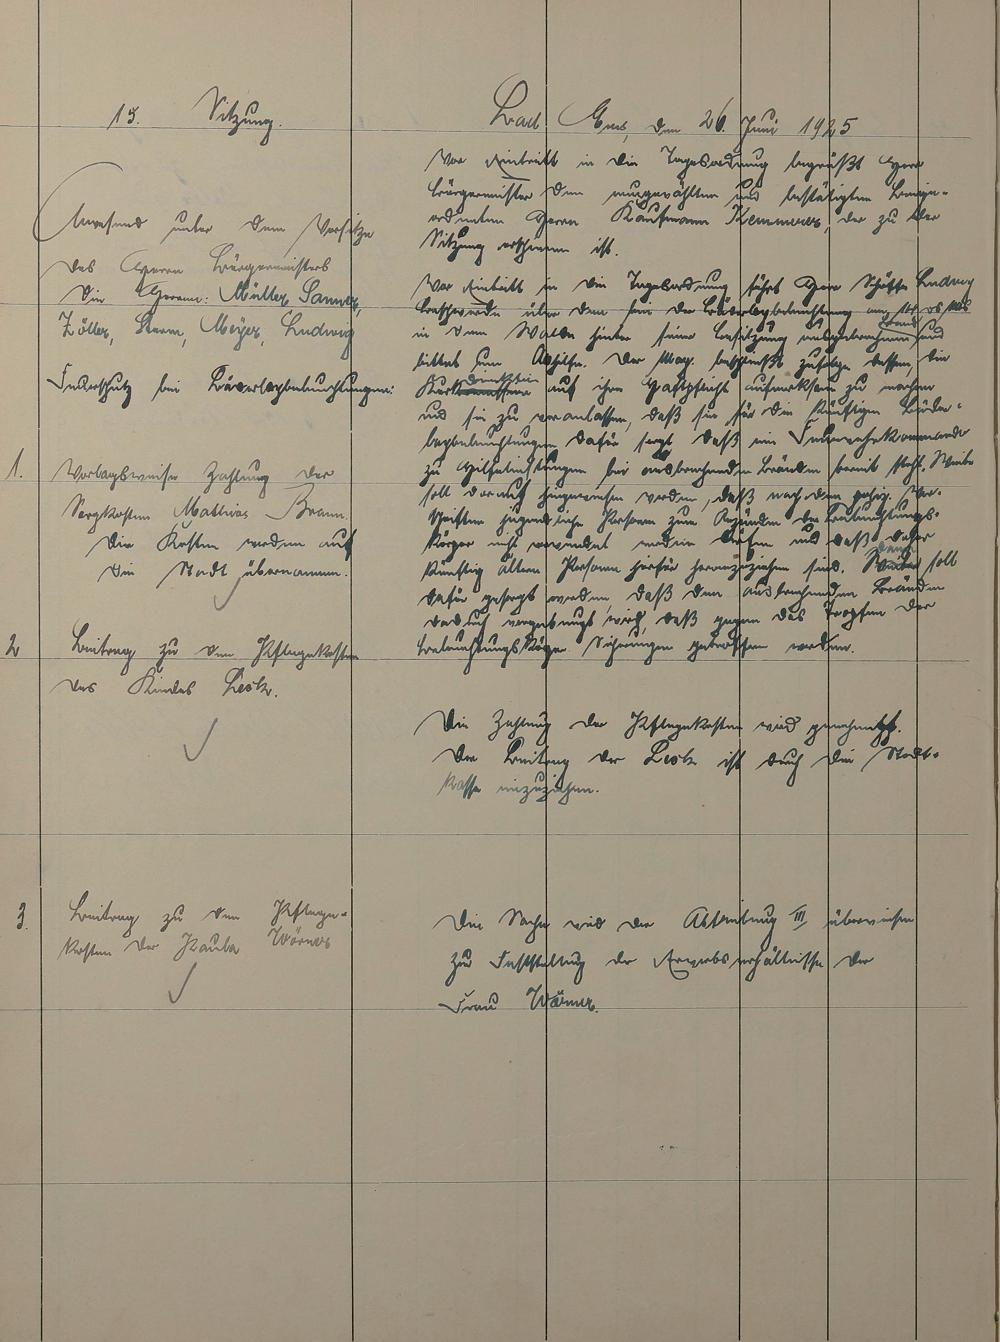 15. Sitzung.
Bad Ems, den 26. Juni 1925
Anwesend unter dem Vorsitze
des Herrn Bürgermeisters
die Herren: Müller, Sanner,
Zöller, Sturm, Meyer, Ludwig
Vor Eintritt in die Tagesordnung begrüßt Herr
Bürgermeister den neugewählten und bestätigten Beige-
ordneten Herrn Kaufmann Kemmerer, der zu der
Sitzung erschienen ist.
Feuerschutz bei Bäderleybeleuchtungen:
Vor Eintritt in die Tagesordnung führt Herr Schöffe Ludwig
Beschwerde über den bei der Bäderleybeleuchtung
in dem Walde hinter seiner Besitzung ausgebrochenen Brand
bittet um Abhilfe. Der Mag. beschließt zufolge dessen, die
Kurdirektion auf ihre Haftpflicht aufmerksam zu machen
und sie zu veranlassen, daß sie für die künftigen Bäder-
leybeleuchtungen dafür sorgt daß ein Feuerwehrkommando
zu Hilfeleistungen bei ausbrechenden Bränden bereit steht. Weiter
soll darauf hingewiesen werden, daß nach den poliz. Vor-
schriften jugendliche Personen zum Anzünden der Beleuchtungs-
körper nicht verwendet werden dürfen und daß daher
künftig ältere Personen hierfür heranzuziehen sind. soll
dafür gesorgt werden, daß den ausbrechenden Bränden
dadurch vorgebeugt wird, daß gegen das Tropfen der
Beleuchtungskörper Sicherungen getroffen werden.
1. Vorlagsweise Zahlung der
Sargkosten Mathias Braun.
Die Kosten werden auf
die Stadt übernommen.
2 Beitrag zu den Pflegekosten
des Kindes Lesk.
Die Zahlung der Pflegekosten wird genehmigt.
Der Beitrag der Lesk ist durch die Stadt-
kasse einzuziehen.
3. Beitrag zu den Pflege-
kosten der Paula Wörner
Die Sache wird der Abteilung III überwiesen
zur Feststellung der Erwerbsverhältnisse der
Frau Wörner.